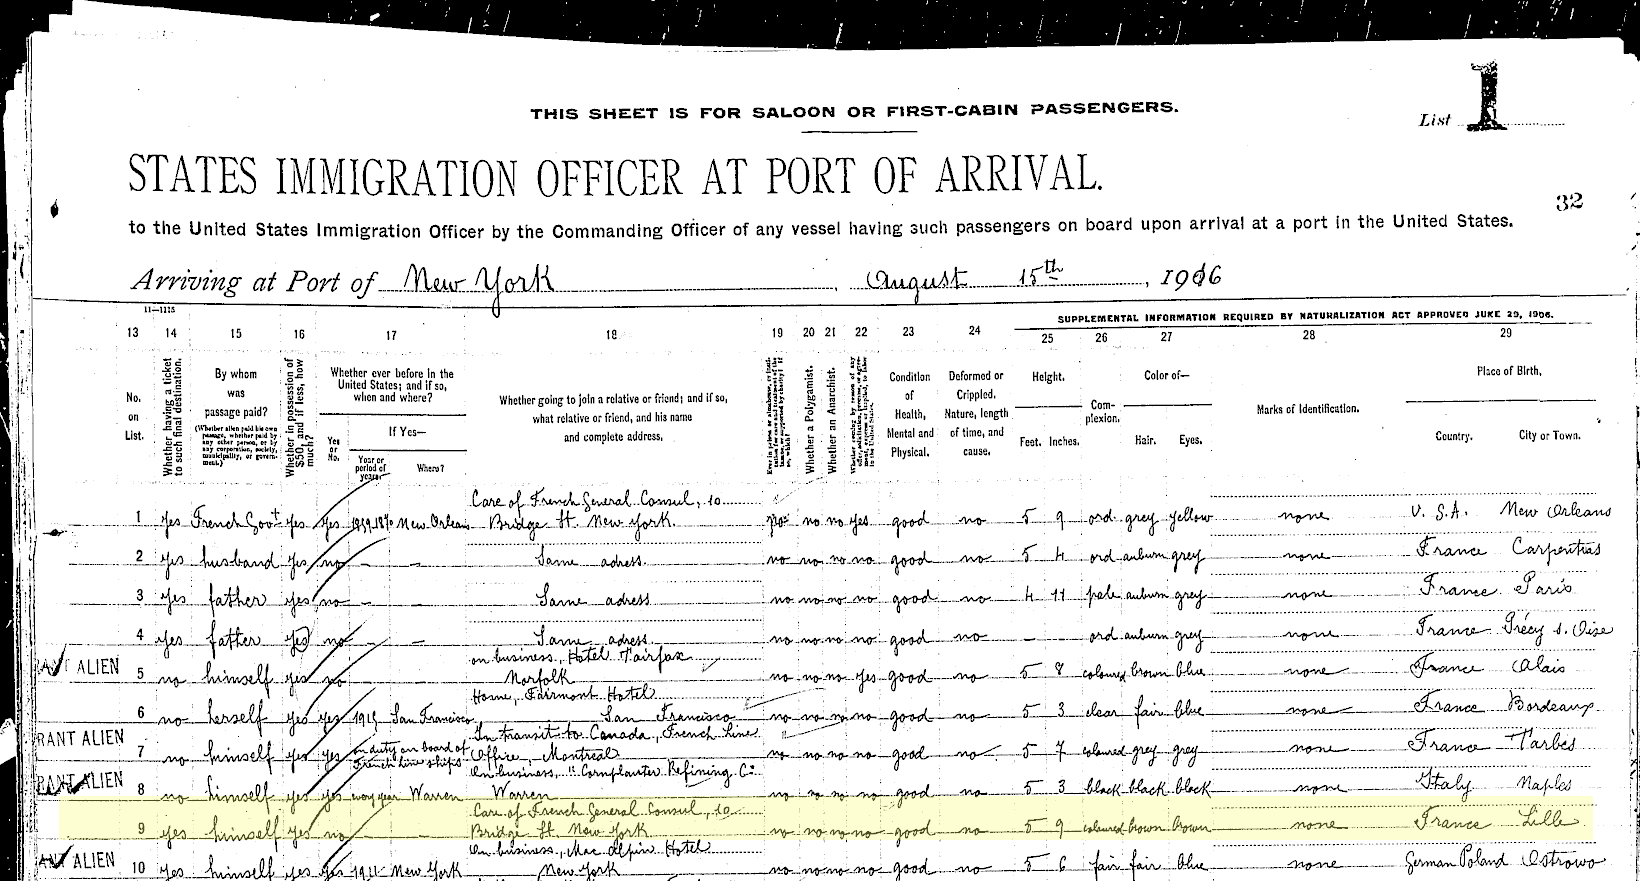 THIS SHEET IS FOR SALOON OR FIRST-CABIN PASSENGERS.
List 1
STATES IMMIGRATION OFFICER AT PORT OF ARRIVAL.
32
to the United States Immigration Officer by the Commanding Officer of any vessel having such passengers on board upon arrival at a port in the United States.
Arriving at Port of New York, August 15th, 1916
11—1115
SUPPLEMENTAL INFORMATION REQUIRED BY NATURALIZATION ACT APPROVED JUNE 29, 1906.
13 14 15 16 17 18 19 20 21 22 23 24 25 26 27 28 29
No. on List.
Whether having a ticket to such final destination.
By whom was passage paid?
(Whether alien paid his own passage, whether paid by any other person, or by any corporation, society, municipality, or government.)
Whether in possession of $50, and if less, how much?
Whether ever before in the United States; and if so, when and where?
Yes or No.
If Yes—
Year or period of years.
Where?
Whether going to join a relative or friend; and if so, what relative or friend, and his name and complete address.
Whether a Polygamist.
Whether an Anarchist.
Condition of Health, Mental and Physical.
Deformed or Crippled. Nature, length of time, and cause.
Height.
Feet. Inches.
Complexion.
Color of—
Hair. Eyes.
Marks of Identification.
Place of Birth.
Country. City or Town.
Care of French General Consul, 10
1 yes French Gov't yes yes New Orleans Bridge St. New York. no no yes good no 5 9 ord grey yellow none U.S.A. New Orleans
2 yes husband yes no — — Same adress. no no no no good no 5 4 ord auburn grey none France Carpentras
3 yes father yes no — — Same adress no no no no good no 4 11 pale auburn grey none France Paris
4 yes father yes no — — Same adress. no no no no good no — — ord auburn grey none France Précy s. Oise
on business, Hotel Fairfax
ALIEN 5 no himself yes no Norfolk no no no yes good no 5 8 coloured brown blue none France Alais
Home, Fairmont Hotel
6 no herself yes yes 1915 San Francisco San Francisco no no no no good no 5 3 clear fair blue none France Bordeaux
In transit to Canada, French Line
RANT ALIEN 7 no himself yes yes on duty on board of French line ships Office, Montreal no no no no good no 5 7 coloured grey grey none France Tarbes
On business, "Cornplanter Refining Co:
RANT ALIEN 8 no himself yes yes every year Warren Warren no no no no good no 5 3 black black black none Italy Naples
Care of French General Consul, 10
9 yes himself yes no — — Bridge St. New York no no no no good no 5 9 coloured brown brown none France Lille
On business, Mac Alpin Hotel
ANT ALIEN 10 yes himself yes yes 1911 New York New York no no no no good no 5 6 fair fair blue none German Poland Ostrowo